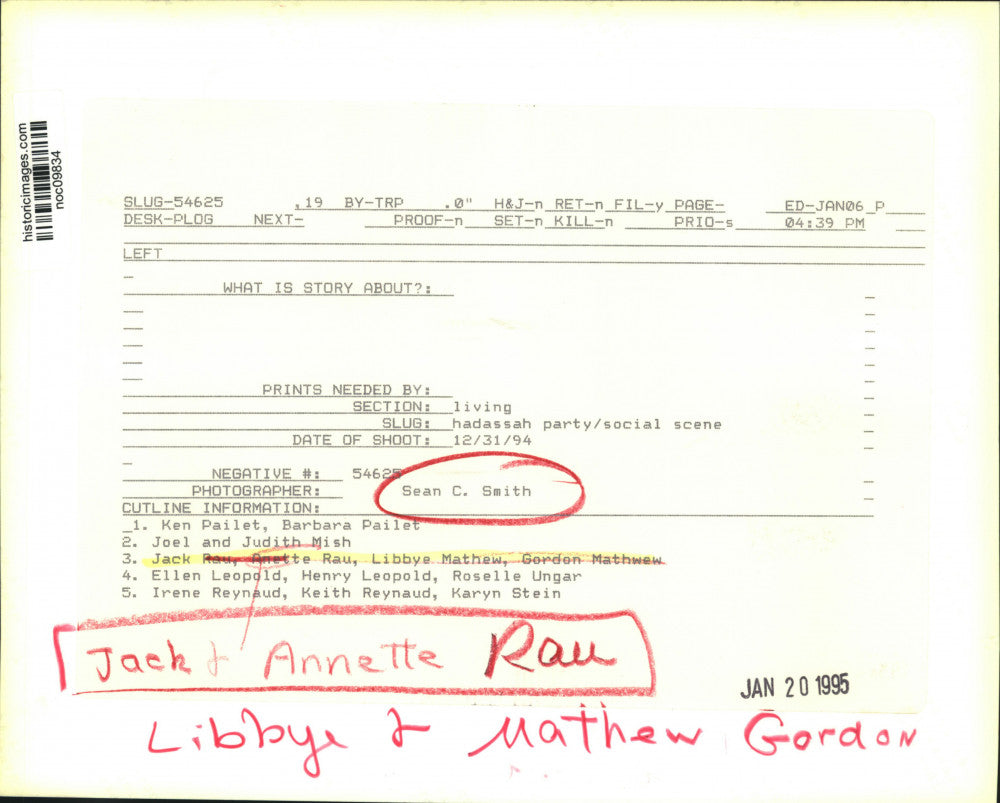 historicimages.com
noc09834
SLUG-54625 ,19 BY-TRP .0" H&J-n RET-n FIL-y PAGE- ED-JAN06 P
DESK-PLOG NEXT- PROOF-n SET-n KILL-n PRIO-s 04:39 PM
LEFT
WHAT IS STORY ABOUT?:
PRINTS NEEDED BY:
SECTION: living
SLUG: hadassah party/social scene
DATE OF SHOOT: 12/31/94
NEGATIVE #: 54625
PHOTOGRAPHER: Sean C. Smith
CUTLINE INFORMATION:
1. Ken Pailet, Barbara Pailet
2. Joel and Judith Mish
3. Jack Rau, Anette Rau, Libbye Mathew, Gordon Mathwew
4. Ellen Leopold, Henry Leopold, Roselle Ungar
5. Irene Reynaud, Keith Reynaud, Karyn Stein
Jack & Annette Rau
JAN 20 1995
Libbye & Mathew Gordon